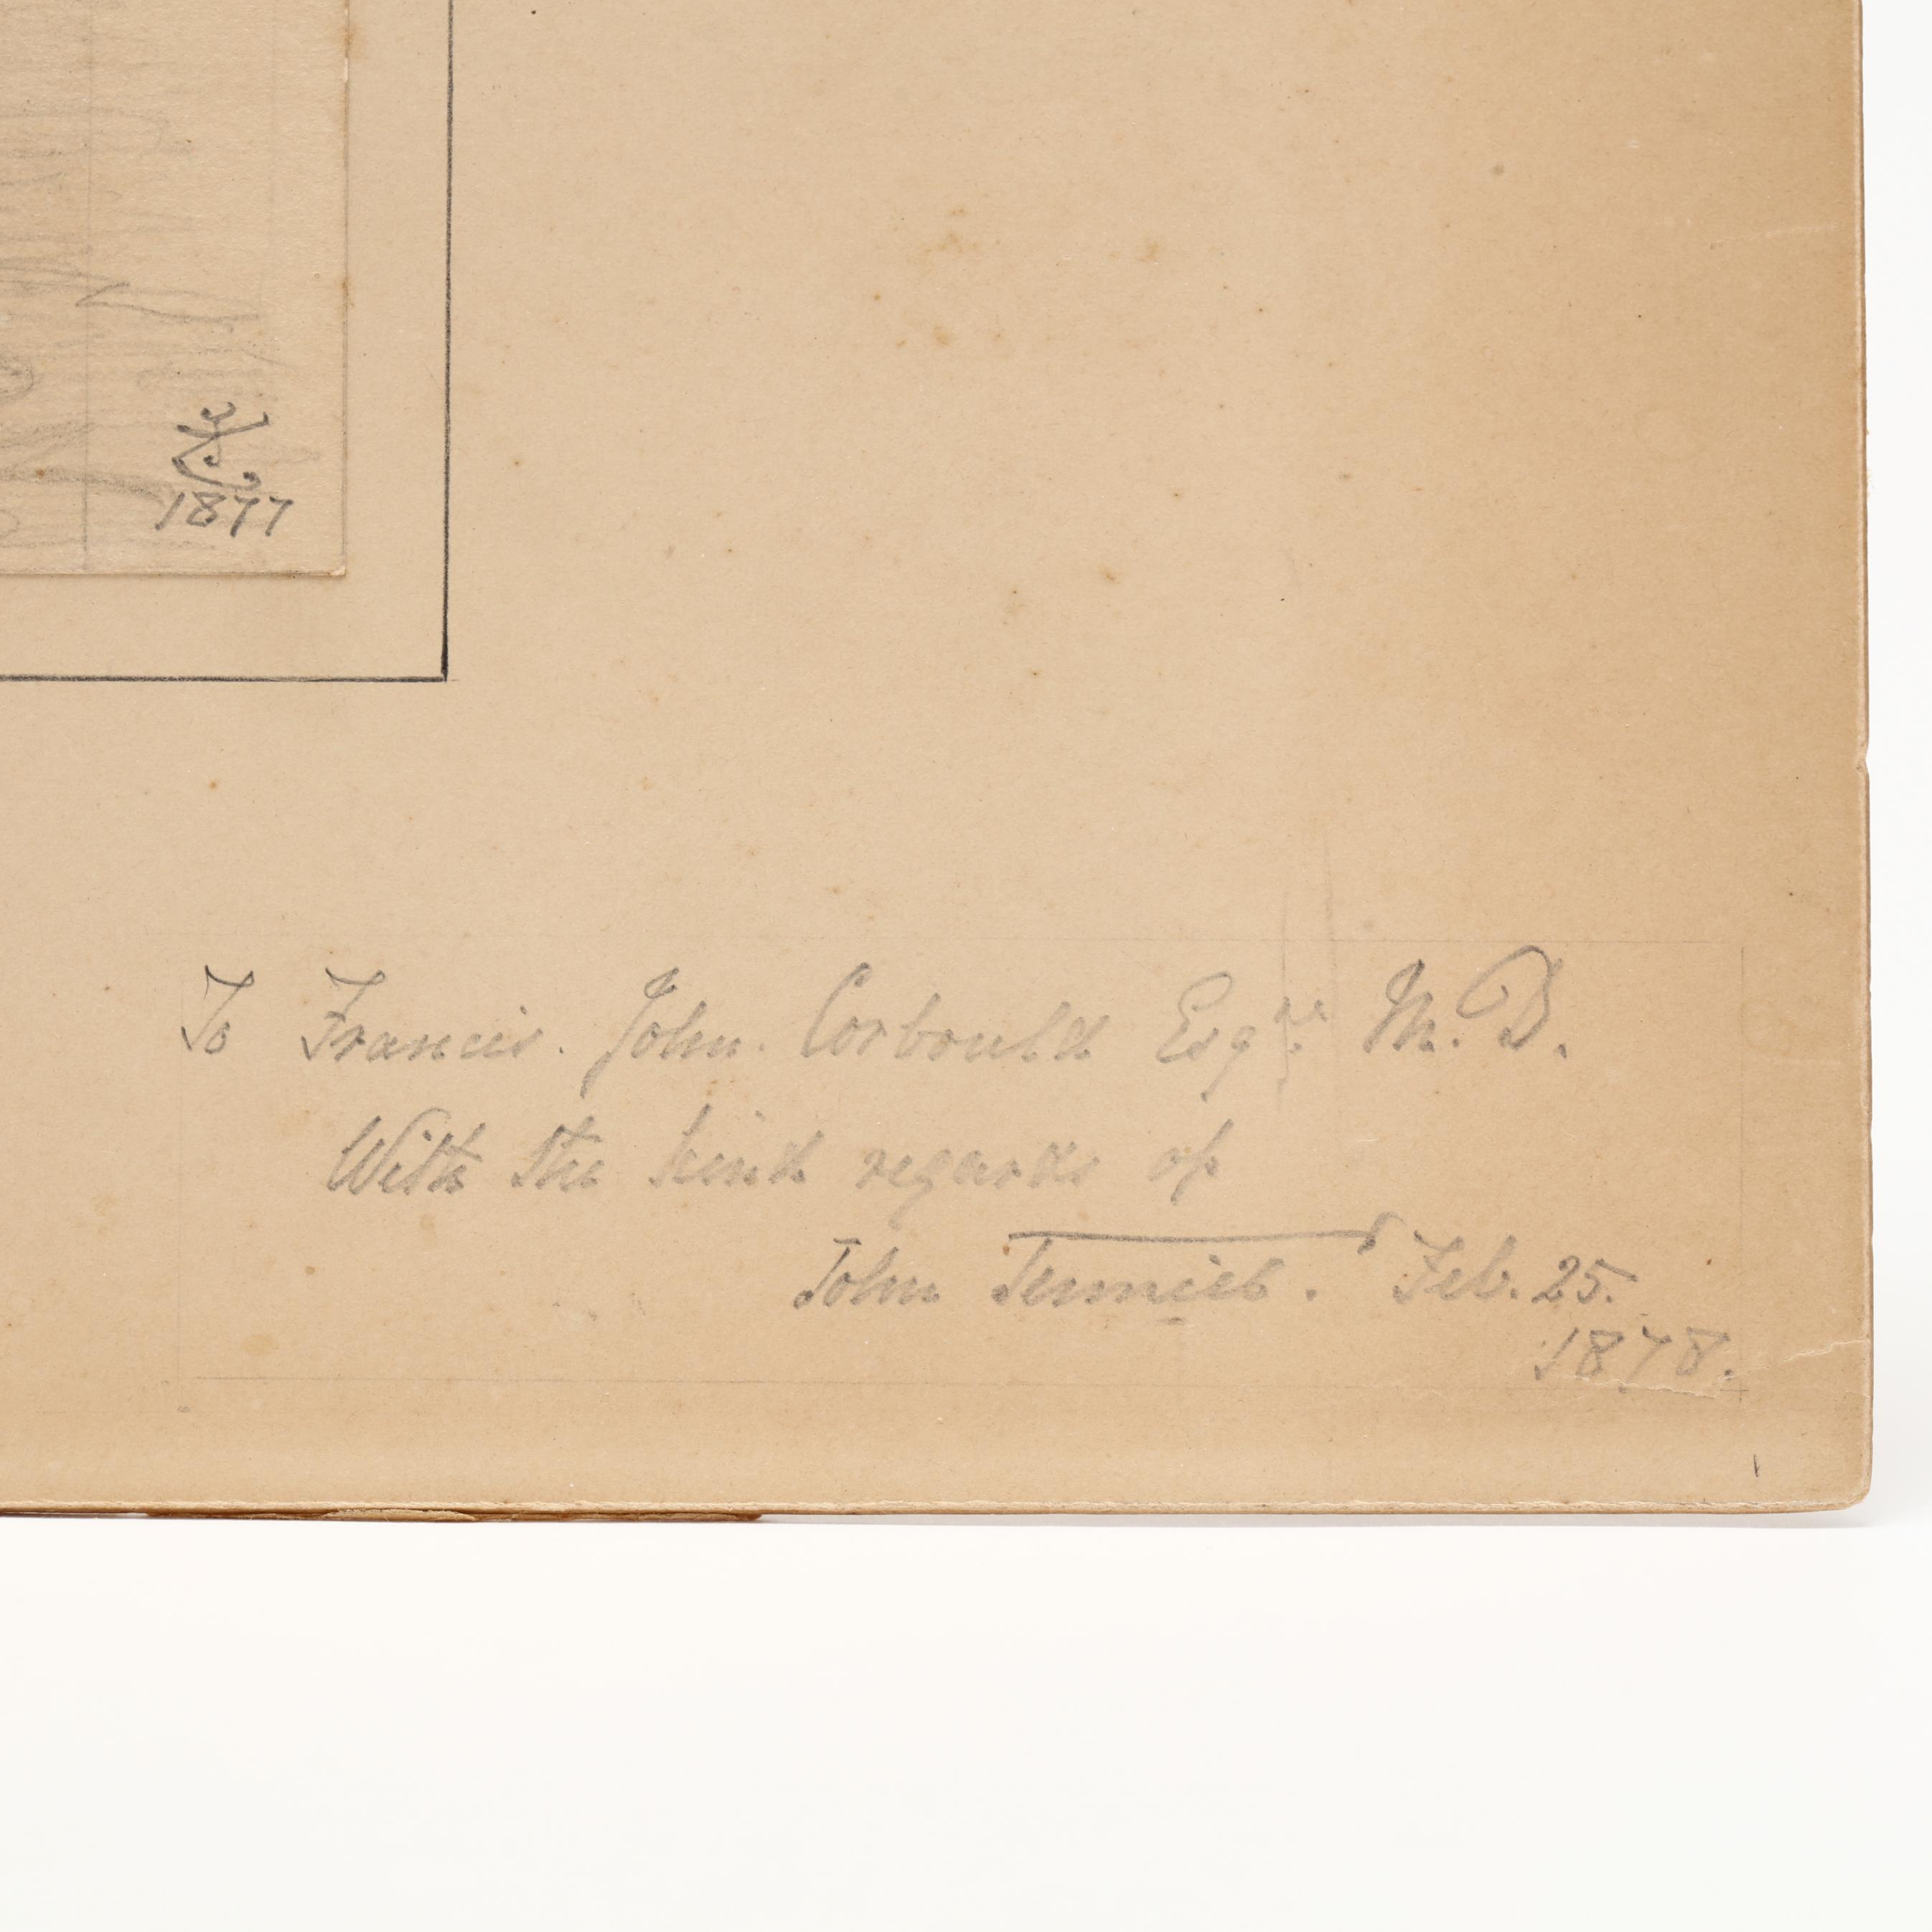 1877
To Francis. John. Corbould Esqre. M. D.
With the kind regards of
John Tenniel. Feb. 25.
1878.